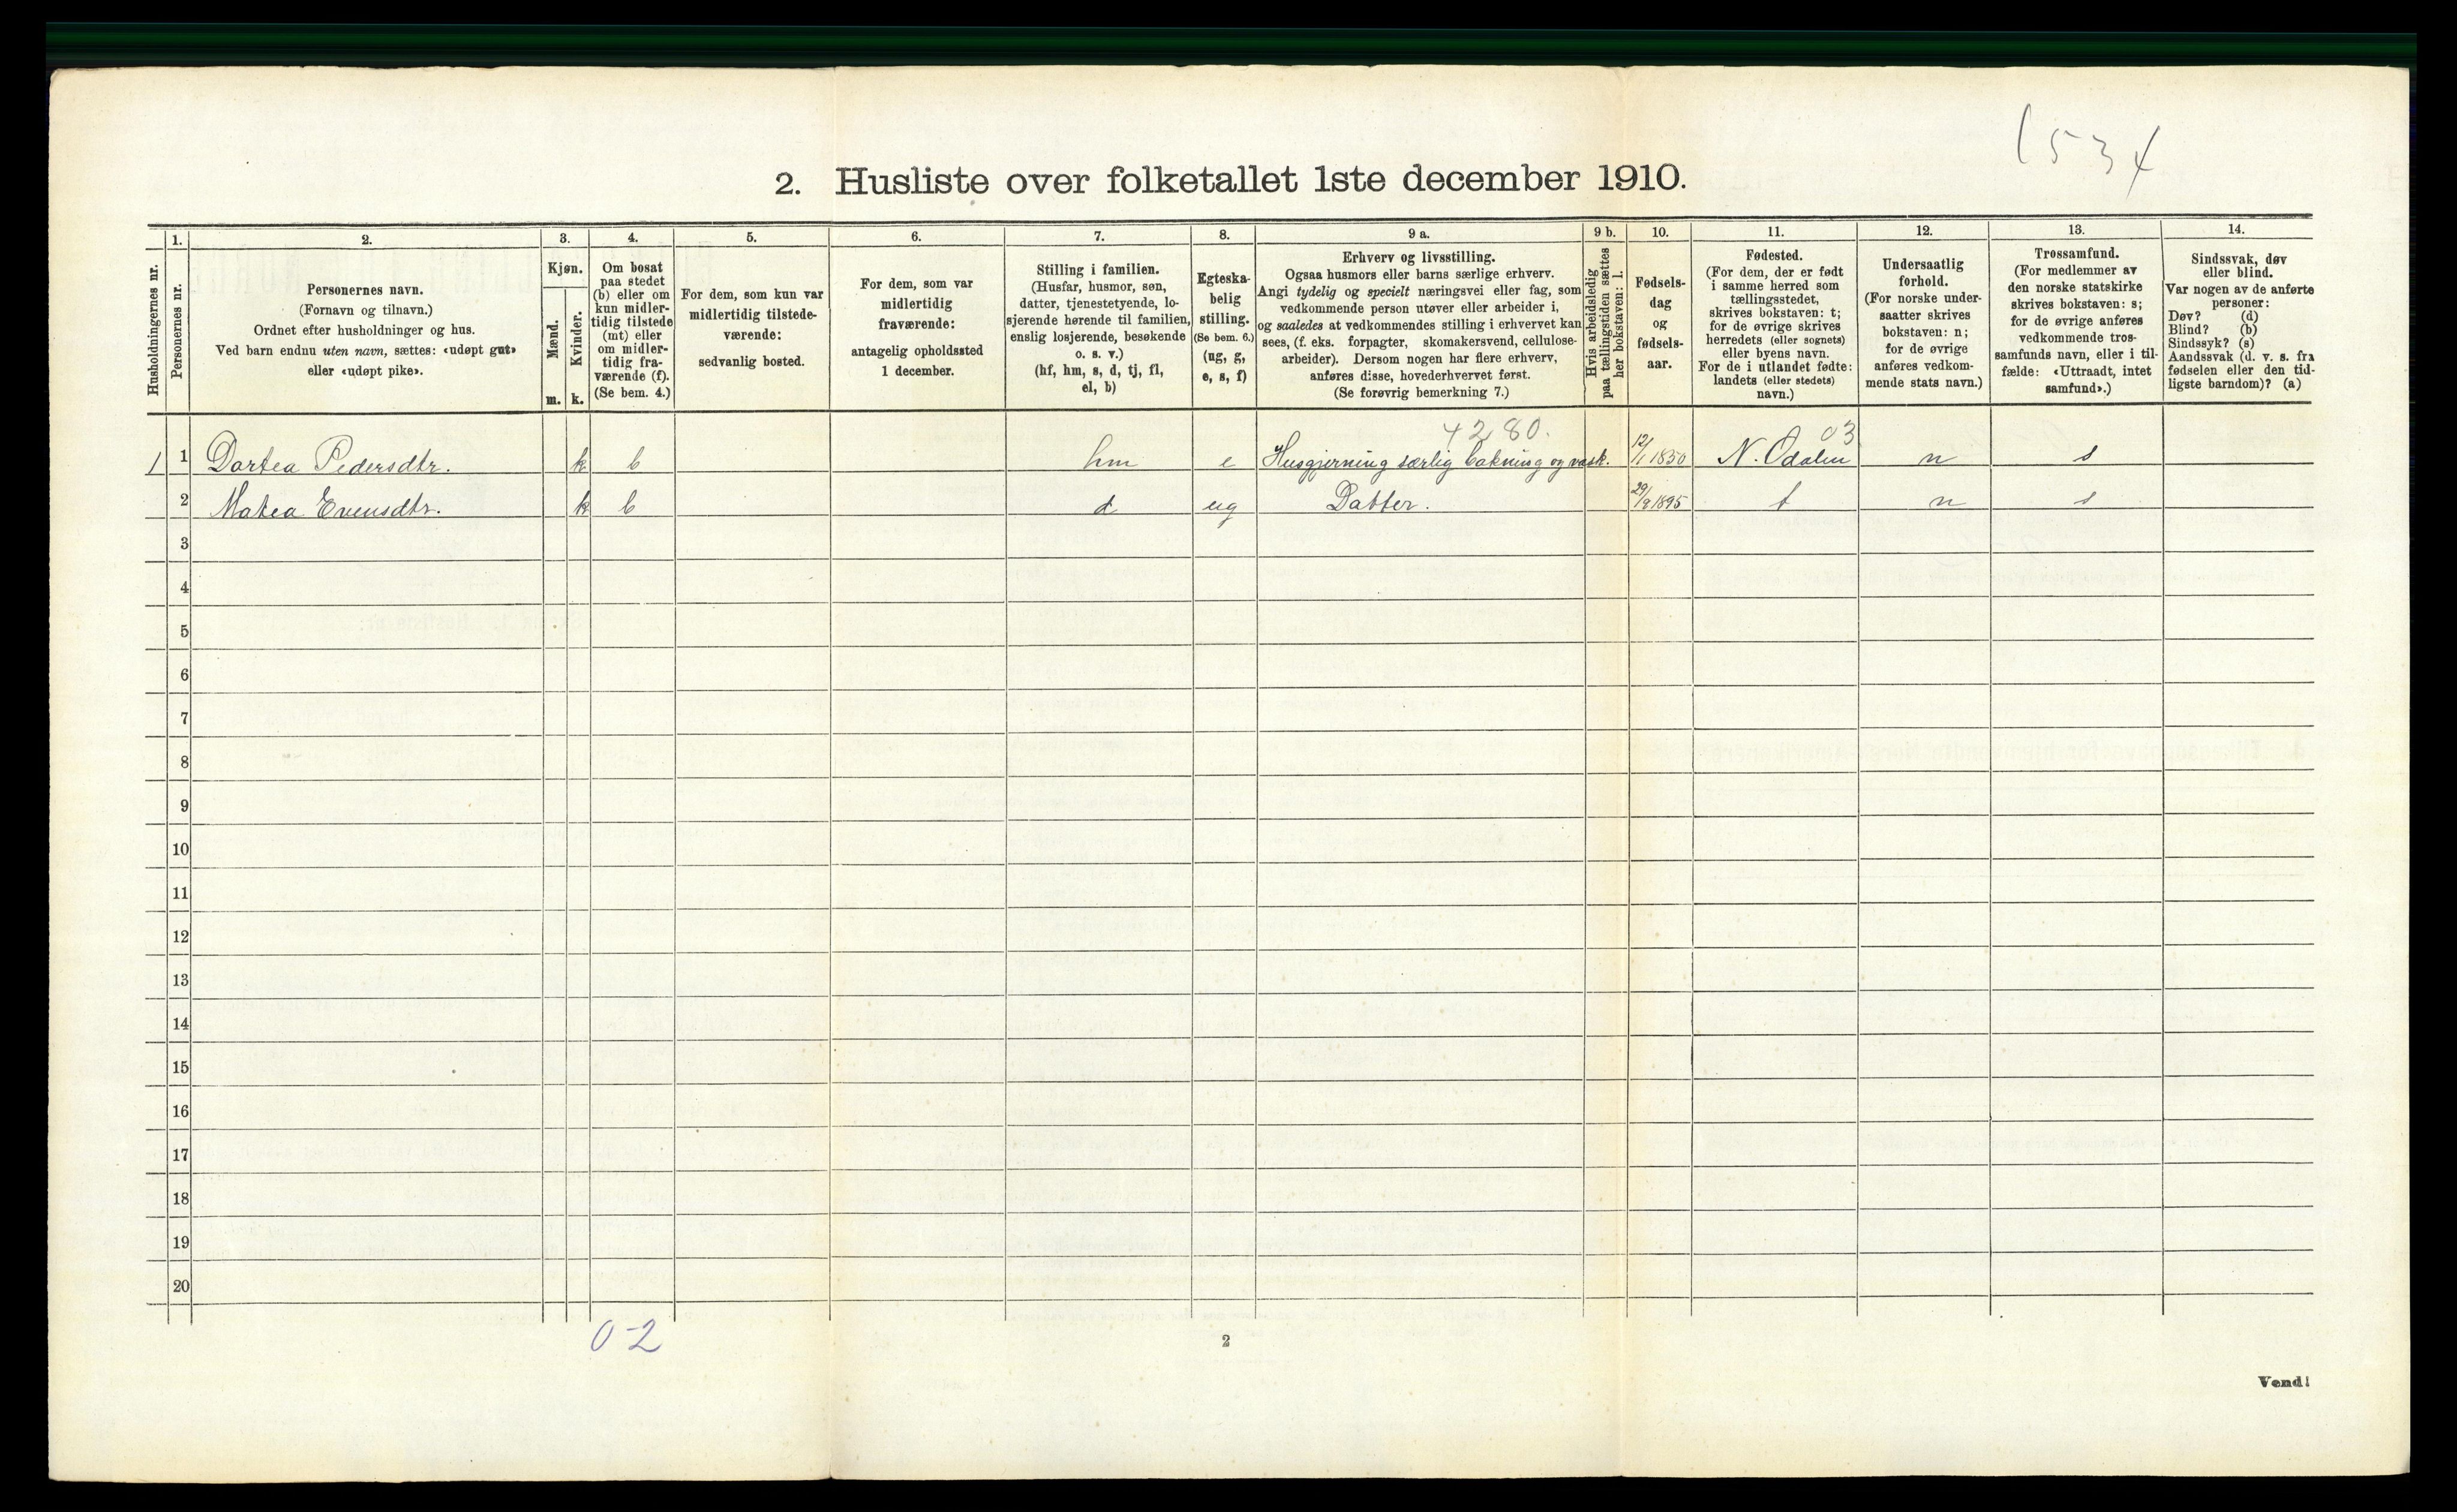 1534
2. Husliste over folketallet 1ste december 1910.
Husholdningernes nr.
1.
Personernes nr.
2.
Personernes navn.
(Fornavn og tilnavn.)
Ordnet efter husholdninger og hus.
Ved barn endnu uten navn, sættes: «udøpt gut»
eller «udøpt pike».
3.
Kjøn.
Mænd.
m.
Kvinder.
k.
4.
Om bosat
paa stedet
(b) eller om
kun midler-
tidig tilstede
(mt) eller
om midler-
tidig fra-
værende (f).
(Se bem. 4.)
5.
For dem, som kun var
midlertidig tilstede-
værende:
sedvanlig bosted.
6.
For dem, som var
midlertidig
fraværende:
antagelig opholdssted
1 december.
7.
Stilling i familien.
(Husfar, husmor, søn,
datter, tjenestetyende, lo-
sjerende hørende til familien,
enslig losjerende, besøkende
o. s. v.)
(hf, hm, s, d, tj, fl,
el, b)
8.
Egteska-
belig
stilling.
(Se bem. 6.)
(ug, g,
e, s, f)
9 a.
Erhverv og livsstilling.
Ogsaa husmors eller barns særlige erhverv.
Angi tydelig og specielt næringsvei eller fag, som
vedkommende person utøver eller arbeider i,
og saaledes at vedkommendes stilling i erhvervet kan
sees, (f. eks. forpagter, skomakersvend, cellulose-
arbeider). Dersom nogen har flere erhverv,
anføres disse, hovederhvervet først.
(Se forøvrig bemerkning 7.)
9 b.
Hvis arbeidsledig
paa tællingstiden sættes
her bokstaven: l.
10.
Fødsels-
dag
og
fødsels-
aar.
11.
Fødested.
(For dem, der er født
i samme herred som
tællingsstedet,
skrives bokstaven: t;
for de øvrige skrives
herredets (eller sognets)
eller byens navn.
For de i utlandet fødte:
landets (eller stedets)
navn.)
12.
Undersaatlig
forhold.
(For norske under-
saatter skrives
bokstaven: n;
for de øvrige
anføres vedkom-
mende stats navn.)
13.
Trossamfund.
(For medlemmer av
den norske statskirke
skrives bokstaven: s;
for de øvrige anføres
vedkommende tros-
samfunds navn, eller i til-
fælde: «Uttraadt, intet
samfund».)
14.
Sindssvak, døv
eller blind.
Var nogen av de anførte
personer:
Døv? (d)
Blind? (b)
Sindssyk? (s)
Aandssvak (d. v. s. fra
fødselen eller den tid-
ligste barndom)? (a)
4280. 03
1 1 Dortea Pedersdtr. k b hm e Husgjerning særlig bakning og vask. 12/1 1850 N. Odalen n s
2 Matea Evensdtr. k b d ug Datter. 29/8 1895 t n s
3
4
5
6
7
8
9
10
11
12
13
14
15
16
17
18
19
20
0-2
2
Vend!